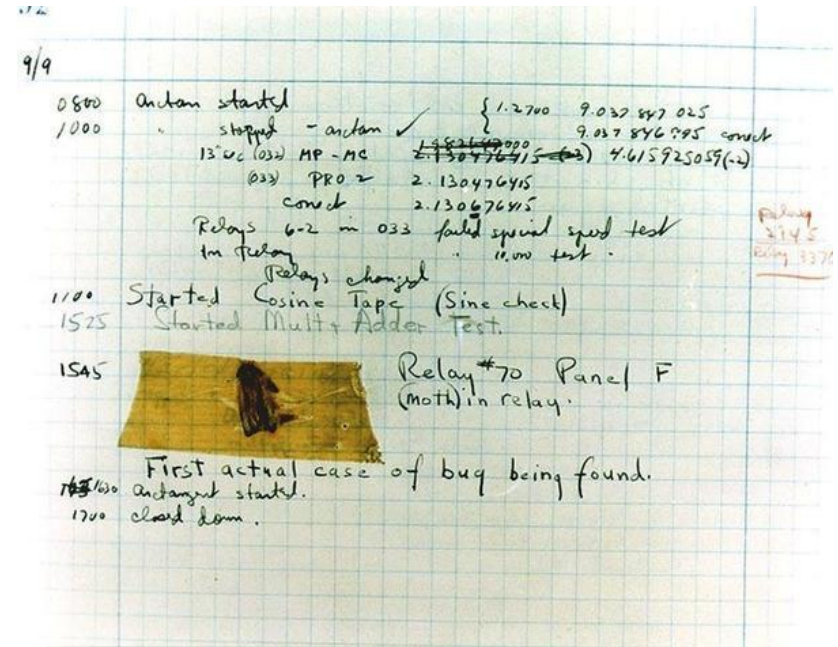 92
9/9
0800 Antan started
1000 " stopped - antan ✓ { 1.2700 9.037 847 025
9.037 846 995 correct
13"uc (032) MP - MC 2.130476415 (-3) 4.615925059(-2)
(033) PRO 2 2.130476415
correct 2.130676415
Relays 6-2 in 033 failed special speed test
In Relay " 10,000 test .
Relays changed
1100 Started Cosine Tape (Sine check)
1525 Started Mult + Adder Test.
1545 Relay #70 Panel F
(moth) in relay.
First actual case of bug being found.
1630 antangent started.
1700 closed down.
Relay
Relay 3370